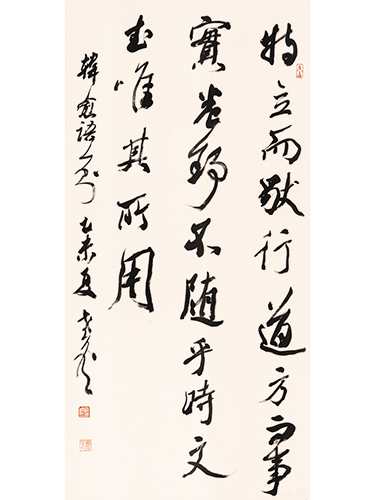 特立而獨行道方而事
實卷舒不随乎時文
武唯其所用
韓愈語一則 乙未夏